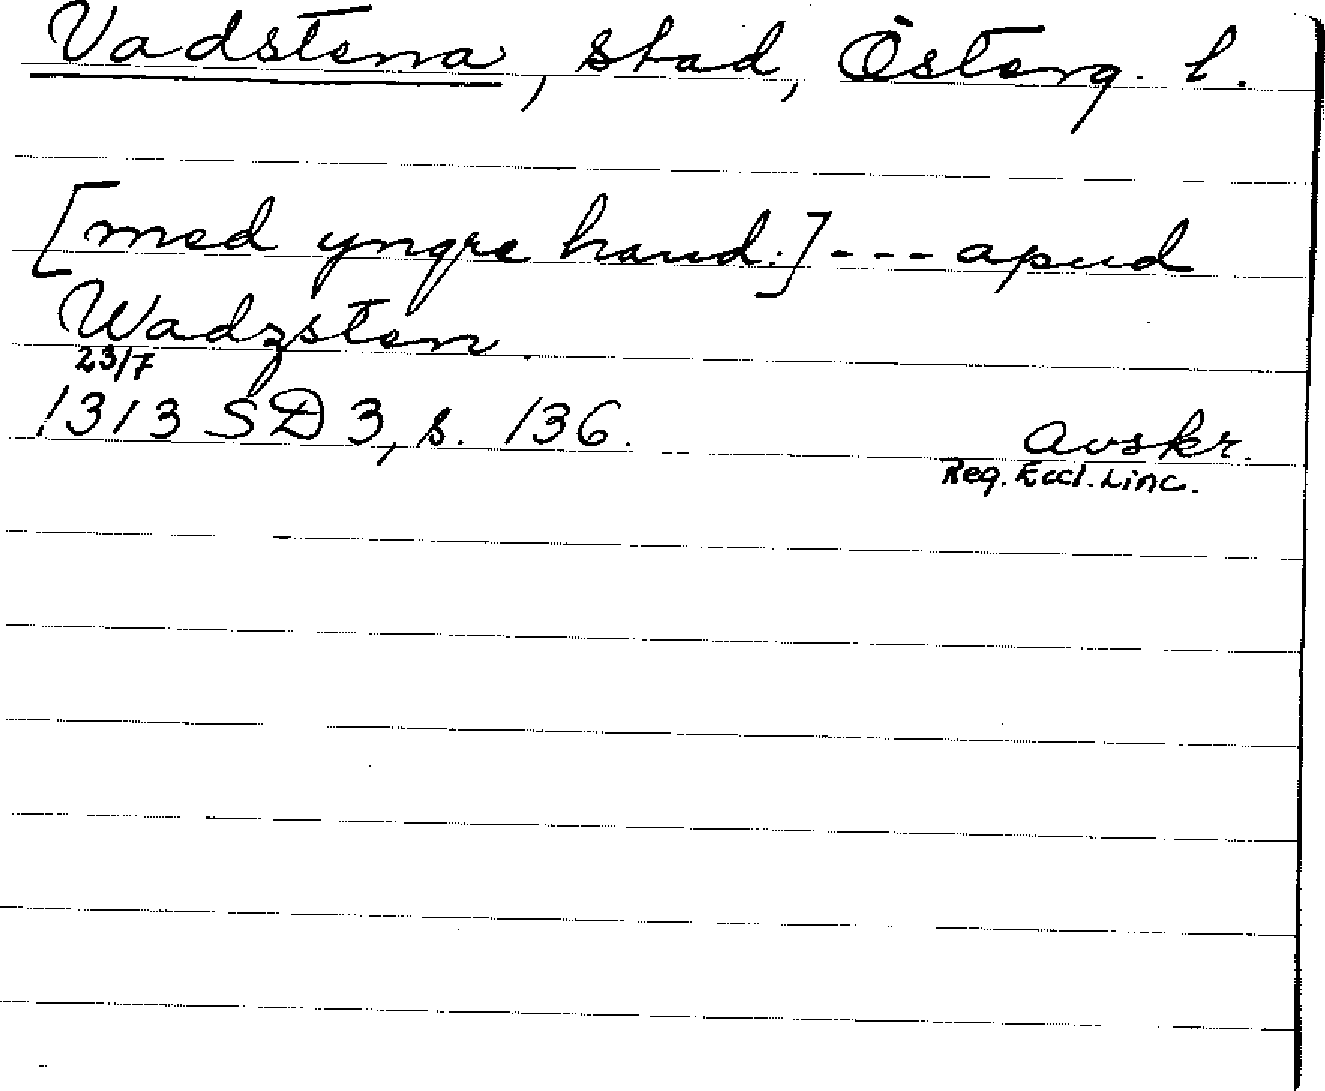 Vadstena, stad, Österg. l.
[med yngre hand:] --- apud
Wadzsten.
23/7
1313 SD 3, s. 136. avskr.
Reg. Eccl. Linc.